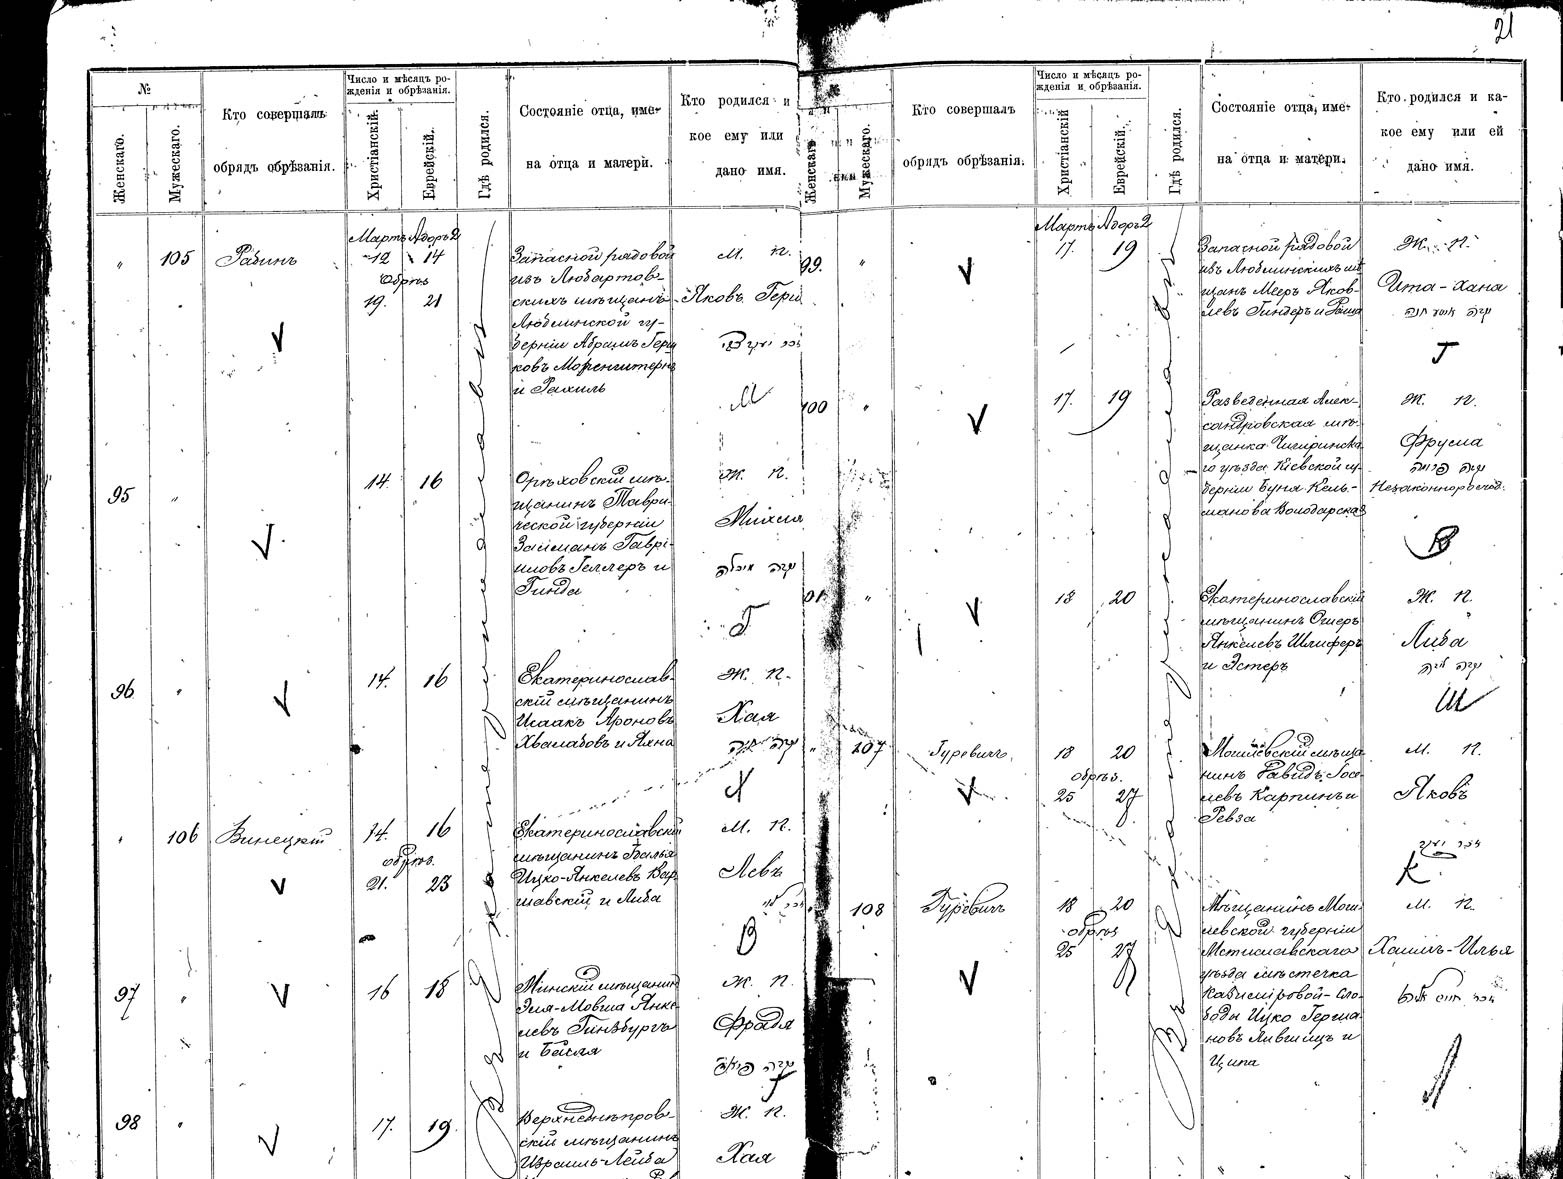 21
№
Женскаго.
Мужескаго.
Кто совершалъ
обрядъ обрѣзанія.
Число и мѣсяцъ ро-
жденія и обрѣзанія.
Христіанскій.
Еврейскій.
Гдѣ родился.
Состояніе отца, име-
на отца и матери.
Кто родился и
кое ему или
дано имя.
105
Рабинъ
Мартъ Адоръ 2
12 14
Обрѣз
19. 21
Запасной рядовой
изъ Любартов-
скихъ мѣщанъ
Люблинской гу-
берніи Абрамъ Герш
ковъ Моргенштернъ
и Рахиль
М. П.
Яковъ Герш
М
95
14. 16
Орѣховскій мѣ-
щанинъ Таври-
ческой губерніи
Займанъ Гаврі-
иловъ Геллеръ и
Гинда
Ж. П.
Михля
Г
96
14. 16
Екатеринослав-
скій мѣщанинъ
Исаакъ Ароновъ
Хвалабовъ и Яхна
Ж. П.
Хая
Х
106
Винецкій
14. 16
обрѣз.
21. 23
Екатеринославскій
мѣщанинъ
Ицко-Янкелевъ Вар-
шавскій и Либа
М. П.
Левъ
В
97
16 18
Минскій мѣщанинъ
Эля-Мовша Янке-
левъ Гинзбургъ
и Бася
Ж. П.
Фрадя
98
17. 19
Верхнеднѣпров-
скій мѣщанинъ
Израиль-Лейба
Ж. П.
Хая
Въ Екатеринославѣ
Женскаго
Мужескаго.
Кто совершалъ
обрядъ обрѣзанія.
Число и мѣсяцъ ро-
жденія и обрѣзанія.
Христіанскій
Еврейскій.
Гдѣ родился.
Состояніе отца, име-
на отца и матери.
Кто родился и ка-
кое ему или ей
дано имя.
99.
Мартъ Адоръ 2
17. 19
Запасной рядовой
изъ Люблинскихъ мѣ
щанъ Мееръ Яков-
левъ Гиндеръ и Раша
Ж. П.
Ита-Хана
Г
100
17. 19
Разведенная Алек-
сандровская мѣ-
щанка Чигиринска
го уѣзда Кіевской гу-
берніи Буня Кель-
манова Володарская
Ж. П.
Фрума
Незаконнорожд.
В
01
18 20
Екатеринославскій
мѣщанинъ Ошеръ
Янкелевъ Шлиферъ
и Эстеръ
Ж. П.
Либа
Ш
107
Гуревичъ
18 20
обрѣз.
25 27
Могилевскій мѣща
нинъ Давидъ Іосе-
левъ Карпинъ и
Ревза
М. П.
Яковъ
К
108
Гуревичъ
18 20
обрѣз
25 27
Мѣщанинъ Моги-
левской губерніи
Мстиславскаго
уѣзда мѣстечка
Казиміровой-Сло-
боды Ицко Герша
новъ Лившицъ и
Ципа
М. П.
Хаимъ-Илья
Л
Въ Екатеринославѣ